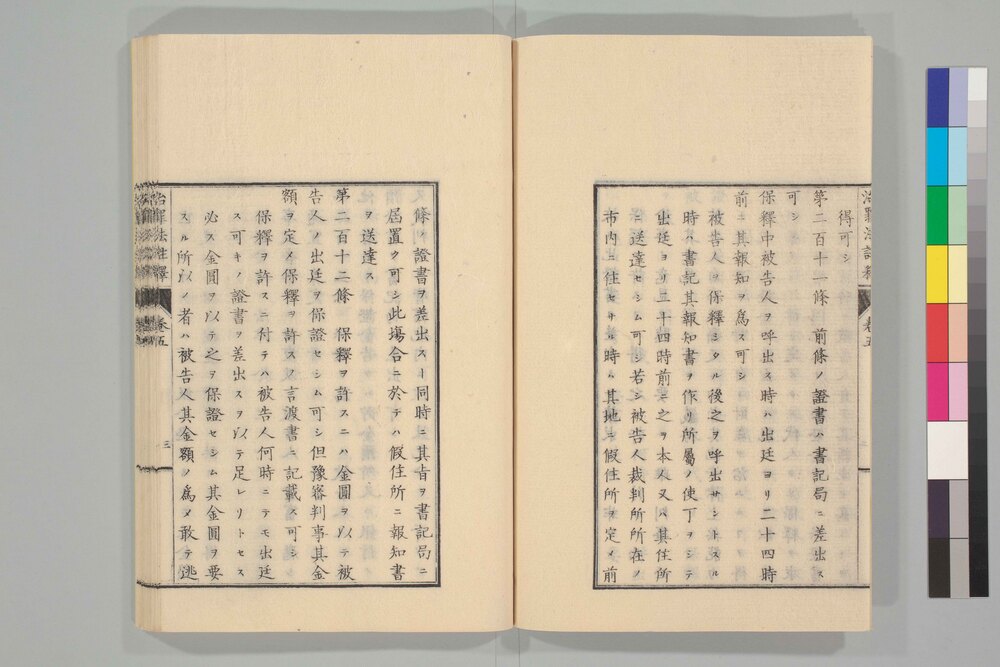 得可シ
第二百十一條　前條ノ證書ハ書記局ニ差出ス
可シ
保釋中被告人ヲ呼出ス時ハ出廷ヨリ二十四時
前ニ其報知ヲ爲ス可シ
被告人ヲ保釋シタル後之ヲ呼出サントスル
時ハ書記其報知書ヲ作リ所屬ノ使丁ヲシテ
出廷ヨリ二十四時前ニ之ヲ本人又ハ其住所
ニ送達セシム可シ若シ被告人裁判所所在ノ
市内ニ住セサル時ハ其地ニ假住所ヲ定メ前
條ノ證書ヲ差出スト同時ニ其旨ヲ書記局ニ
屆置ク可シ此塲合ニ於テハ假住所ニ報知書
ヲ送達ス
第二百十二條　保釋ヲ許スニハ金圓ヲ以テ被
告人ノ出廷ヲ保證セシム可シ但豫審判事其金
額ヲ定メ保釋ヲ許スノ言渡書ニ記載ス可シ
保釋ヲ許スニ付テハ被告人何時ニテモ出廷
ス可キノ證書ヲ差出スヲ以テ足レリトセス
必ス金圓ヲ以テ之ヲ保證セシム其金圓ヲ要
スル所以ノ者ハ被告人其金額ノ爲メ敢テ逃
治罪法註釋　卷五
三